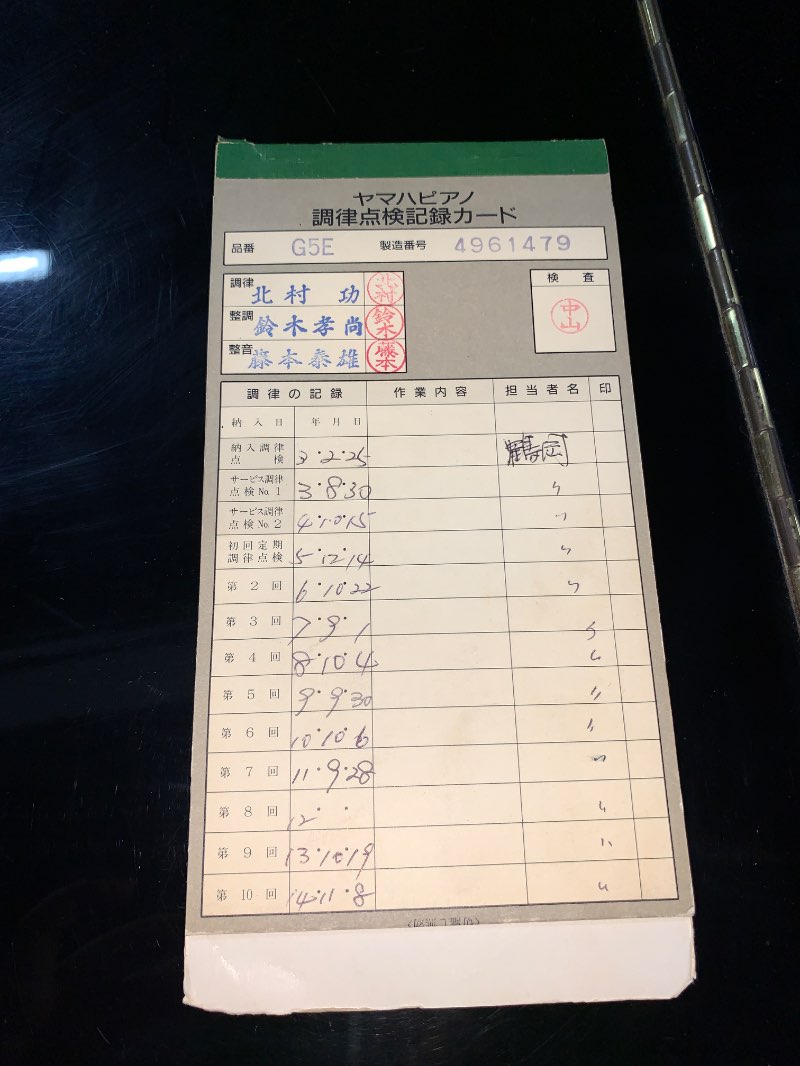 ヤマハピアノ
調律点検記録カード
品番 G5E 製造番号 4961479
調律 北村 功 北村
検査
整調 鈴木孝尚 鈴木
中山
整音 藤本泰雄 藤本
調律の記録 作業内容 担当者名 印
納入日 年 月 日
納入調律点検 3・2・25 鶴岡
サービス調律点検No.1 3・8・30 〃
サービス調律点検No.2 4・10・15 〃
初回定期調律点検 5・12・14 〃
第2回 6・10・22 〃
第3回 7・9・1 〃
第4回 8・10・4 〃
第5回 9・9・30 〃
第6回 10・10・6 〃
第7回 11・9・28 〃
第8回 12・ ・ 〃
第9回 13・10・19 〃
第10回 14・11・8 〃